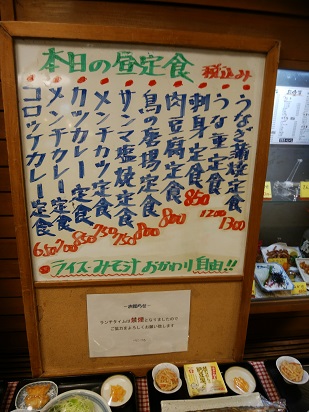 本日の昼定食 税込み
うなぎ蒲焼定食 1300
うな重定食 1200
刺身定食 850
肉豆腐定食 800
鳥の唐揚定食 800
サンマ塩焼定食 750
メンチカツ定食 750
カツカレー定食 850
メンチカレー定食 700
コロッケカレー定食 650
●ライス・みそ汁 おかわり自由!!
―お知らせ―
ランチタイムは禁煙となりましたので
ご協力をよろしくお願い致します